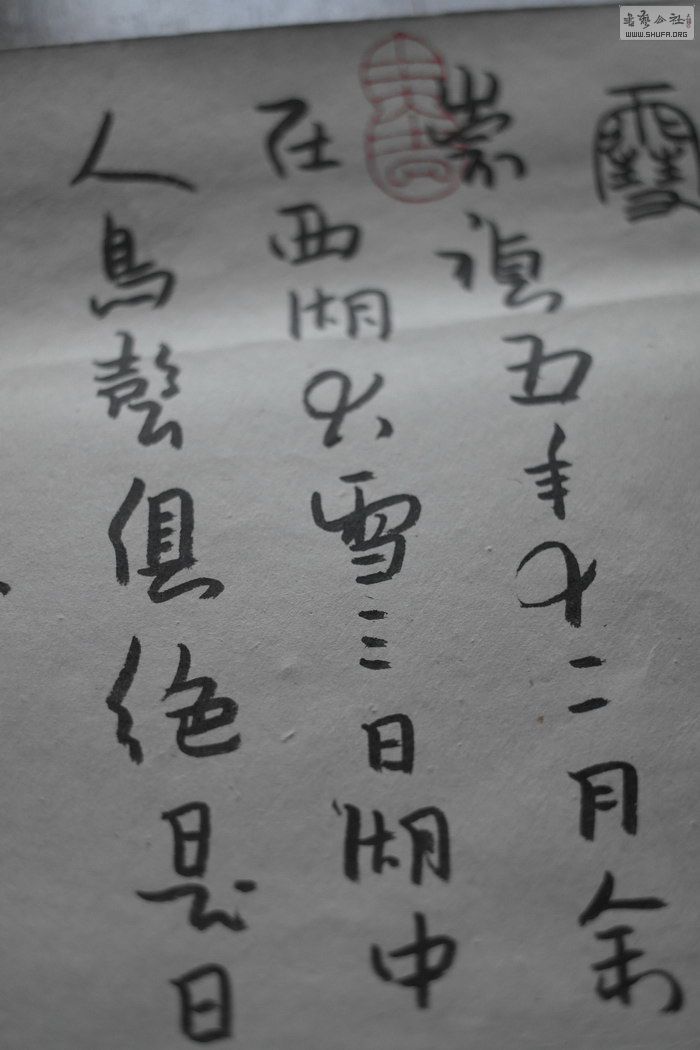 崇禎五年十二月余
在西湖大雪三日湖中
人鳥聲俱絕是日
书艺公社
WWW.SHUFA.ORG